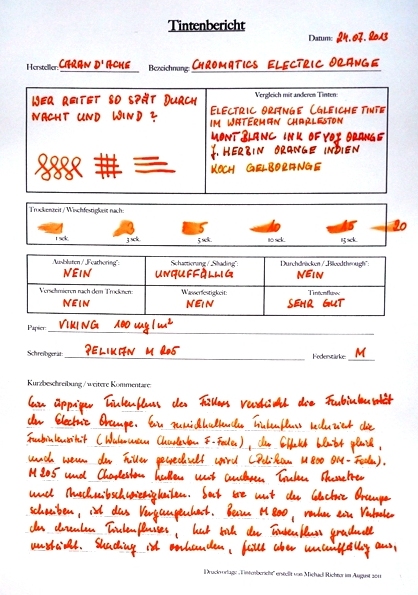 Tintenbericht
Datum: 24.07.2013
Hersteller: CARAN D'ACHE Bezeichnung: CHROMATICS ELECTRIC ORANGE
WER REITET SO SPÄT DURCH
NACHT UND WIND?
Vergleich mit anderen Tinten:
ELECTRIC ORANGE (GLEICHE TINTE
IM WATERMAN CHARLESTON
MONTBLANC INK OF JOY ORANGE
J. HERBIN ORANGE INDIEN
KOCH GELBORANGE
Trockenzeit / Wischfestigkeit nach:
3 5 10 15 20
1 sek. 3 sek. 5 sek. 10 sek. 15 sek.
Ausbluten / „Feathering": Schattierung / „Shading": Durchdrücken / „Bleedthrough":
NEIN UNAUFFÄLLIG NEIN
Verschmieren nach dem Trocknen: Wasserfestigkeit: Tintenfluss:
NEIN NEIN SEHR GUT
Papier: VIKING 100 mg/m²
Schreibgerät: PELIKAN M 205 Federstärke: M
Kurzbeschreibung / weitere Kommentare:
Ein üppiger Tintenfluss des Füllers verstärkt die Farbintensität
der Electric Orange. Ein zurückhaltender Tintenfluss reduziert die
Farbintensität (Waterman Charleston F-Feder), der Effekt bleibt gleich,
auch wenn der Füller gewechselt wird (Pelikan M 800 OM-Feder).
M 205 und Charleston hatten mit anderen Tinten Aussetzer
und Anschreibschwierigkeiten. Seit sie mit der Electric Orange
schreiben, ist das Vergangenheit. Beim M 800, vorher ein Vertreter
des dezenten Tintenflusses, hat sich der Tintenfluss graduell
verstärkt. Shading ist vorhanden, fällt aber unauffällig aus.
Druckvorlage „Tintenbericht" erstellt von Michael Richter im August 2011